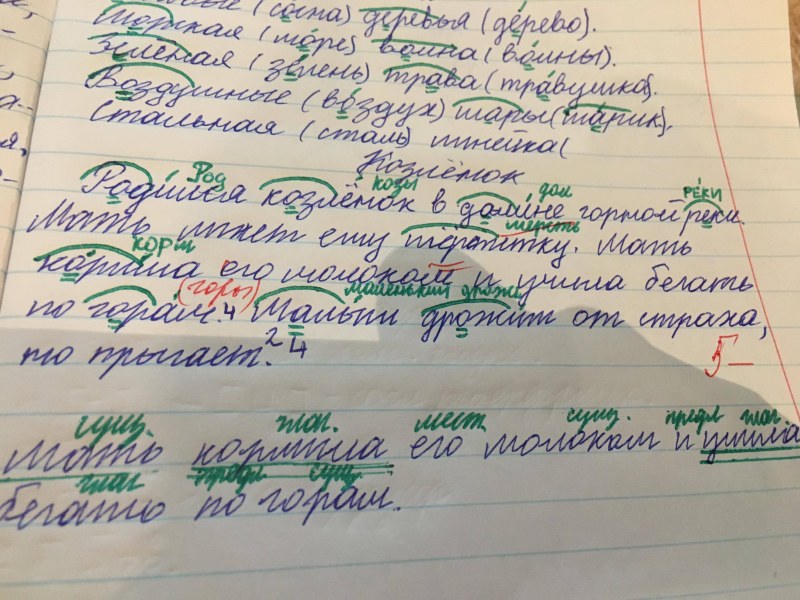 (сосна) деревья (дерево).
Морская (море) волна (волны).
Зелёная (зелень) трава (травушка).
Воздушные (воздух) шары (шарик).
Стальная (сталь) линейка (
Козлёнок
Род козы дол РЕКИ
Родился козлёнок в долине горной реки.
шерсть
Мать лижет ему шёрстку. Мать
корм
кормила его молоком и учила бегать
(горы) маленький дрожь
по горам. 4 Малыш дрожит от страха,
но прыгает. 2 4
5-
сущ. глаг. мест. сущ. предл глаг.
Мать кормила его молоком и учила
глаг предл сущ.
бегать по горам.